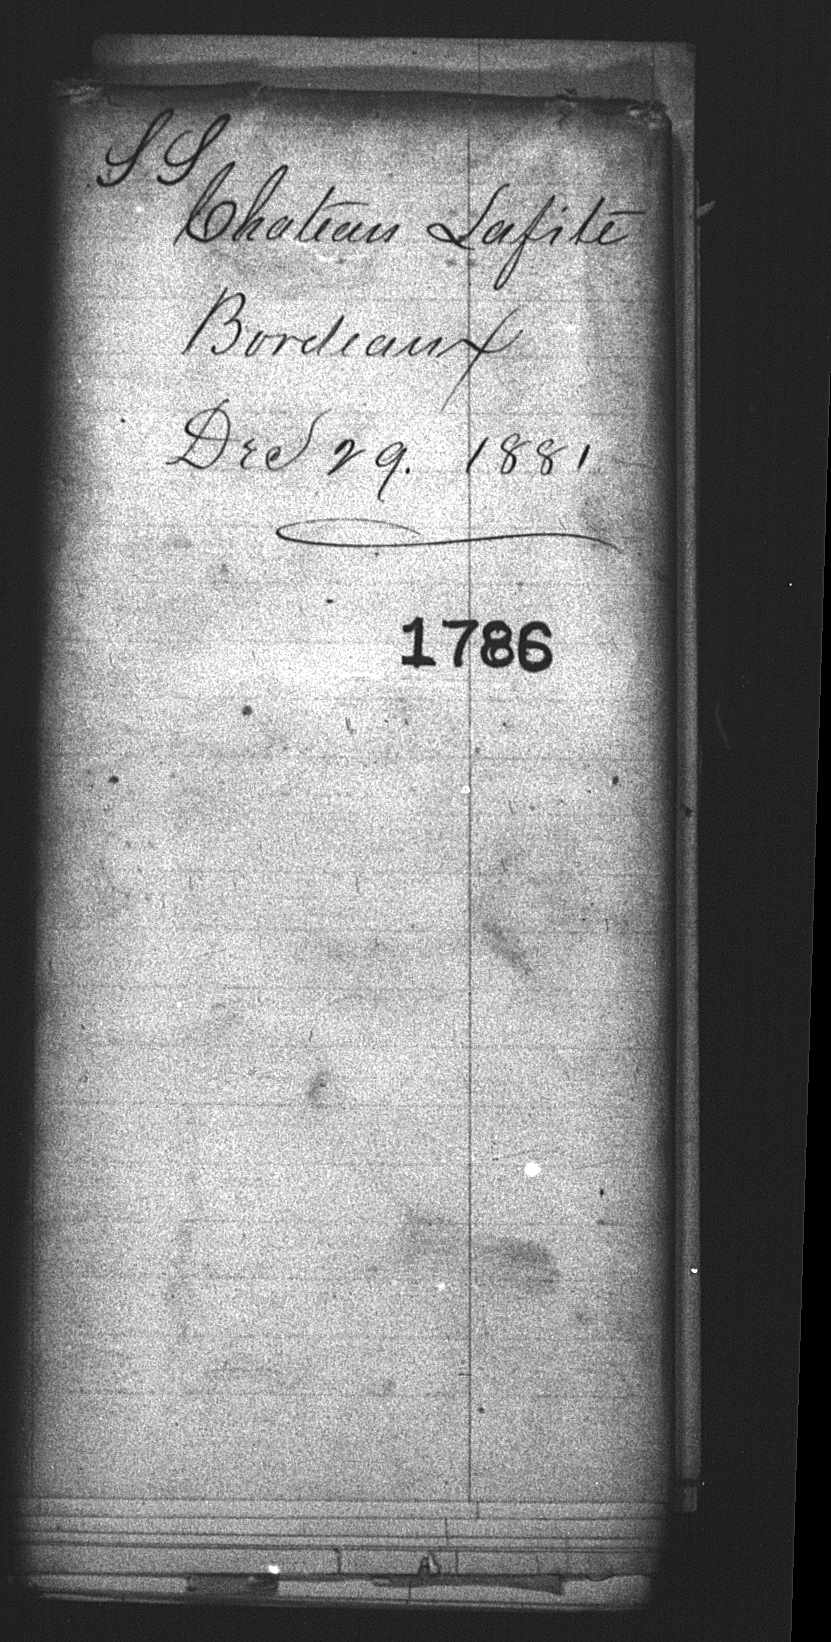 SS
Chateau Lafite
Bordeaux
Dec 29. 1881
1786